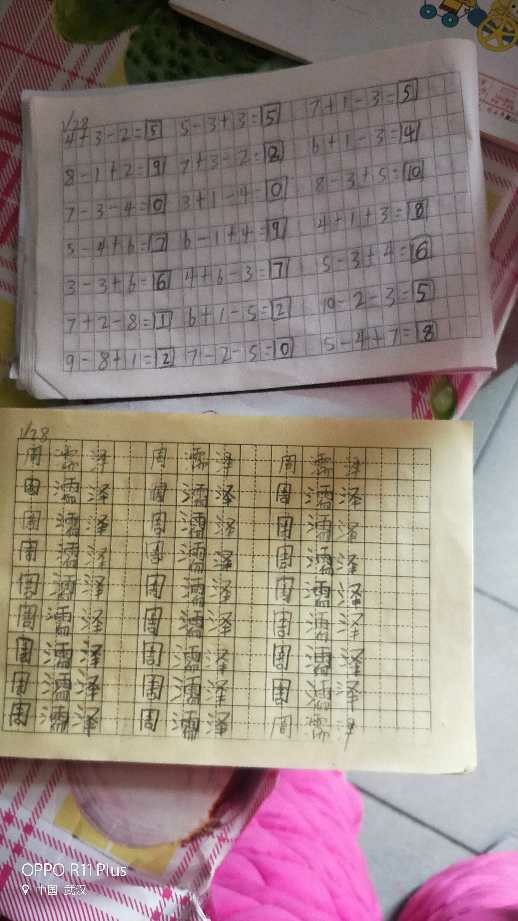 1/28
4+3-2=5 5-3+3=5 7+1-3=5
8-1+2=9 7+3-2=8 6+1-3=4
7-3-4=0 3+1-4=0 8-3+5=10
5-4+6=7 6-1+4=9 4+1+3=8
3-3+6=6 4+6-3=7 5-3+4=6
7+2-8=1 6+1-5=2 10-2-3=5
9-8+1=2 7-2-5=0 5-4+7=8
1/28
周濡泽 周濡泽 周濡泽
周濡泽 周濡泽 周濡泽
周濡泽 周濡泽 周濡泽
周濡泽 周濡泽 周濡泽
周濡泽 周濡泽 周濡泽
周濡泽 周濡泽 周濡泽
周濡泽 周濡泽 周濡泽
周濡泽 周濡泽 周濡泽
周濡泽 周濡泽 周濡泽
OPPO R11 Plus
中国 武汉